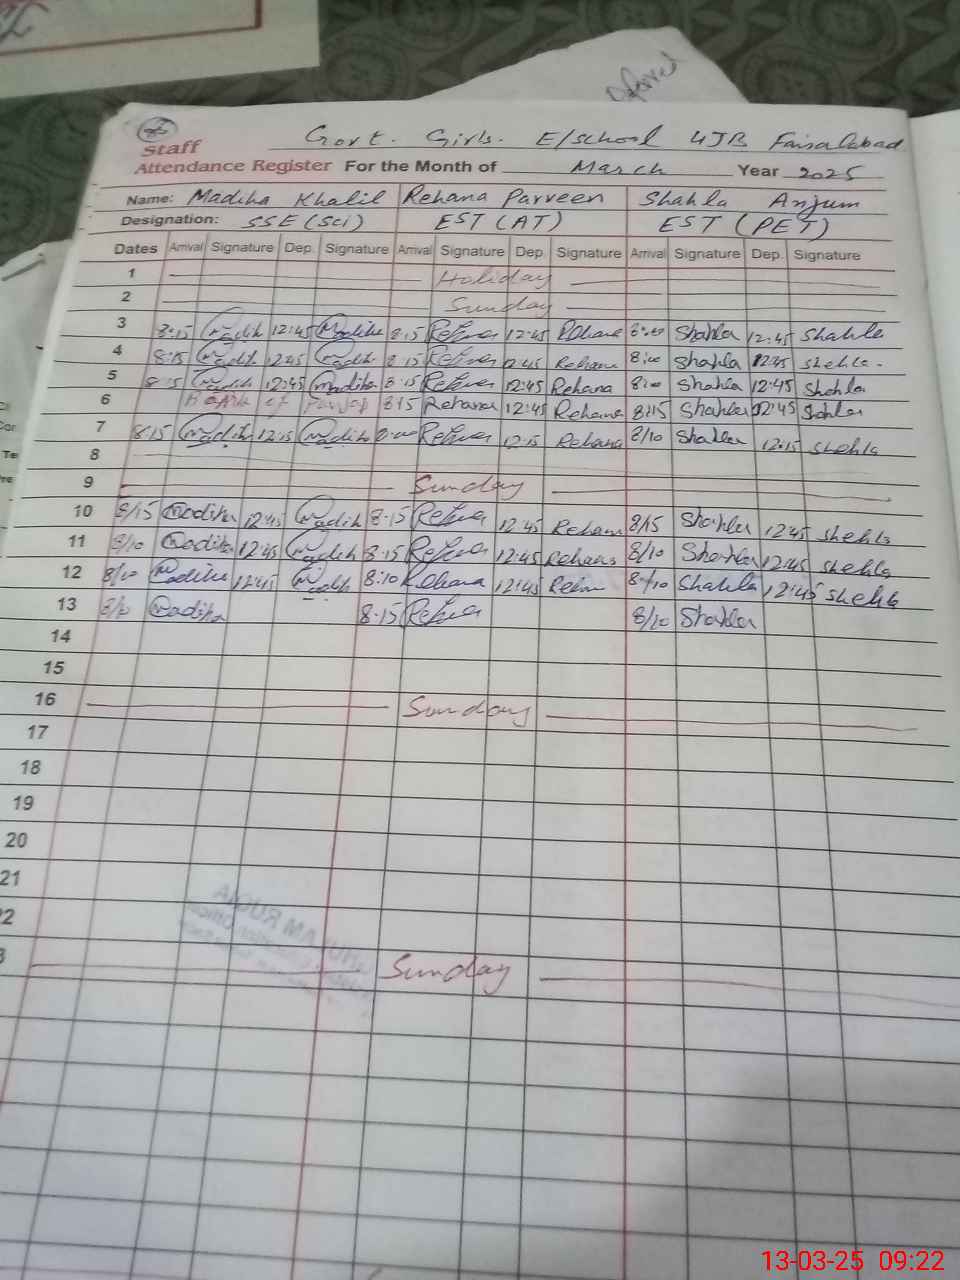 Govt. Girls. E/school 4JB Faisalabad
Staff
Attendance Register For the Month of March Year 2025
Name: Madiha Khalil Rehana Parveen Shahla Anjum
Designation: SSE (Sci) EST (AT) EST (PET)
Dates Arrival Signature Dep. Signature Arrival Signature Dep. Signature Arrival Signature Dep. Signature
1 Holiday
2 Sunday
3 8:15 Madiha 12:45 Madiha 8:15 Rehana 12:45 Rehana Shahla 12:45 Shahla
4 8:15 Madiha 12:45 Madiha 8:15 Rehana 12:45 Rehana 8:10 Shahla 12:45 Shehla
5 8:15 Madiha 12:45 Madiha 8:15 Rehana 12:45 Rehana 8:10 Shahla 12:45 Shahla
6 8:15 Rehana 12:45 Rehana 8:15 Shahla 12:45 Shahla
7 8:15 Madiha 12:15 Madiha Rehana 12:15 Rehana 8/10 Shahla 12:15 Shehla
8
9 Sunday
10 8/15 Madiha 12:45 Madiha 8:15 Rehana 12:45 Rehana 8/15 Shahla 12:45 Shehla
11 8/10 Madiha 12:45 Madiha 8:15 Rehana 12:45 Rehana 8/10 Shahla 12:45 Shehla
12 8/10 Madiha 12:45 Madiha 8:10 Rehana 12:45 Rehana 8/10 Shahla 12:45 Shehla
13 8/10 Madiha 8:15 Rehana 8/10 Shahla
14
15
16 Sunday
17
18
19
20
21
Sunday
13-03-25 09:22